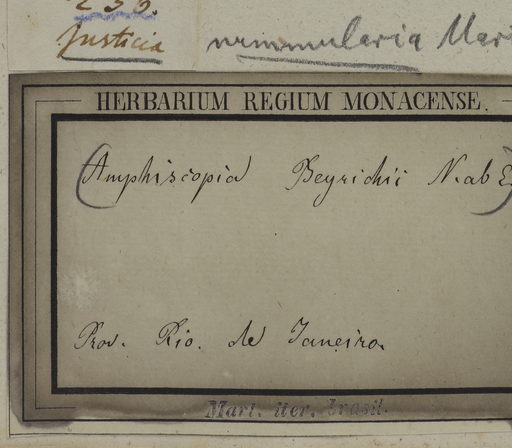 236.
Justicia nummularia Mart
HERBARIUM REGIUM MONACENSE.
(Amphiscopia Beyrichii N. ab E.)
Prov. Rio. de Janeiro.
Mart. iter. brasil.